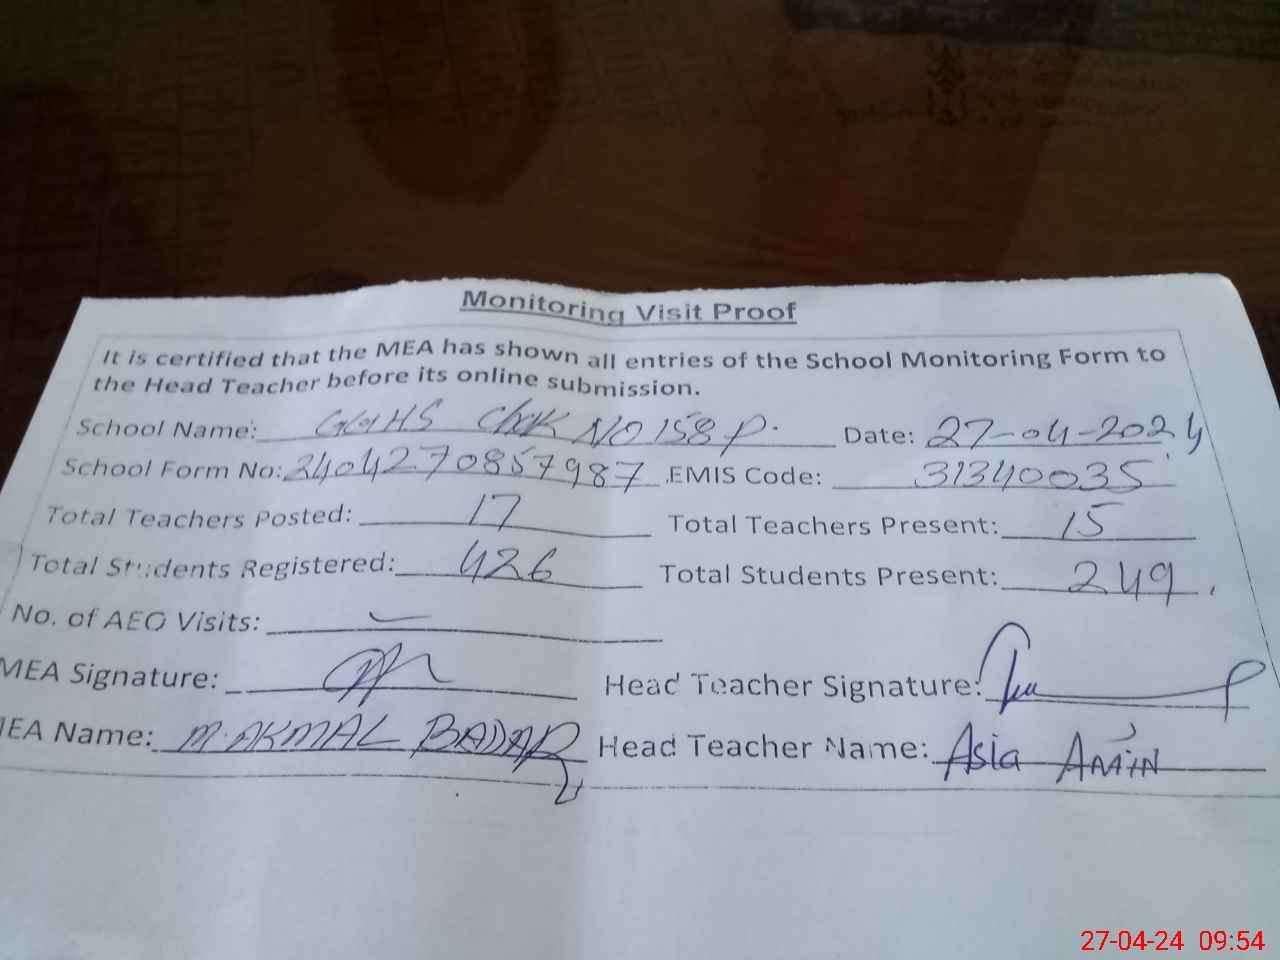 Monitoring Visit Proof
It is certified that the MEA has shown all entries of the School Monitoring Form to
the Head Teacher before its online submission.
School Name: GGHS Chak NO 158 P. Date: 27-04-2024
School Form No: 2404270857987 EMIS Code: 31340035
Total Teachers Posted: 17 Total Teachers Present: 15
Total Students Registered: 426 Total Students Present: 249
No. of AEO Visits: –
MEA Signature: Head Teacher Signature:
MEA Name: M. AKMAL BADAR Head Teacher Name: Asia AMIN
27-04-24 09:54